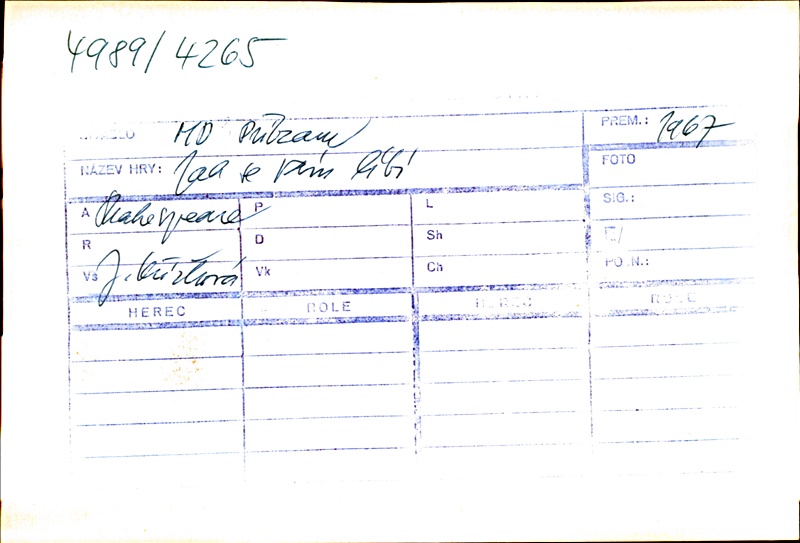 4989/4265
DIVADLO MD Příbram PREM.: 1967
NÁZEV HRY: Jak se vám líbí FOTO
A Shakespeare P L SIG.:
R D Sh
Vs J. Vk Ch
HEREC ROLE HEREC ROLE